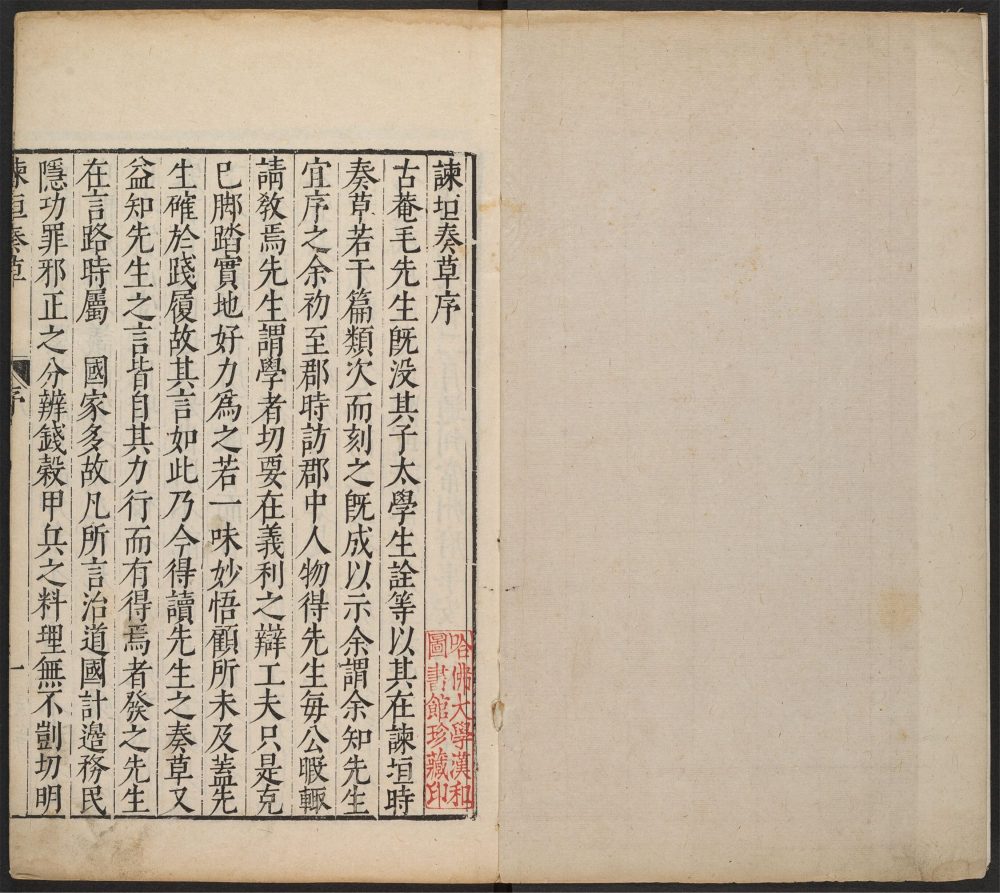 諫垣奏草序
古菴毛先生旣没其子太學生詮等以其在諫垣時
奏草若干篇類次而刻之旣成以示余謂余知先生
宜序之余初至郡時訪郡中人物得先生毎公暇輙
請敎焉先生謂學者切要在義利之辯工夫只是克
已脚踏實地好力爲之若一味妙悟顧所未及蓋先
生確於踐履故其言如此乃今得讀先生之奏草又
益知先生之言皆自其力行而有得焉者發之先生
在言路時屬　國家多故凡所言治道國計邉務民
隱功罪邪正之分辨錢穀甲兵之料理無不剴切明
諫垣奏草
序
一
哈佛大學漢和
圖書館珍藏印